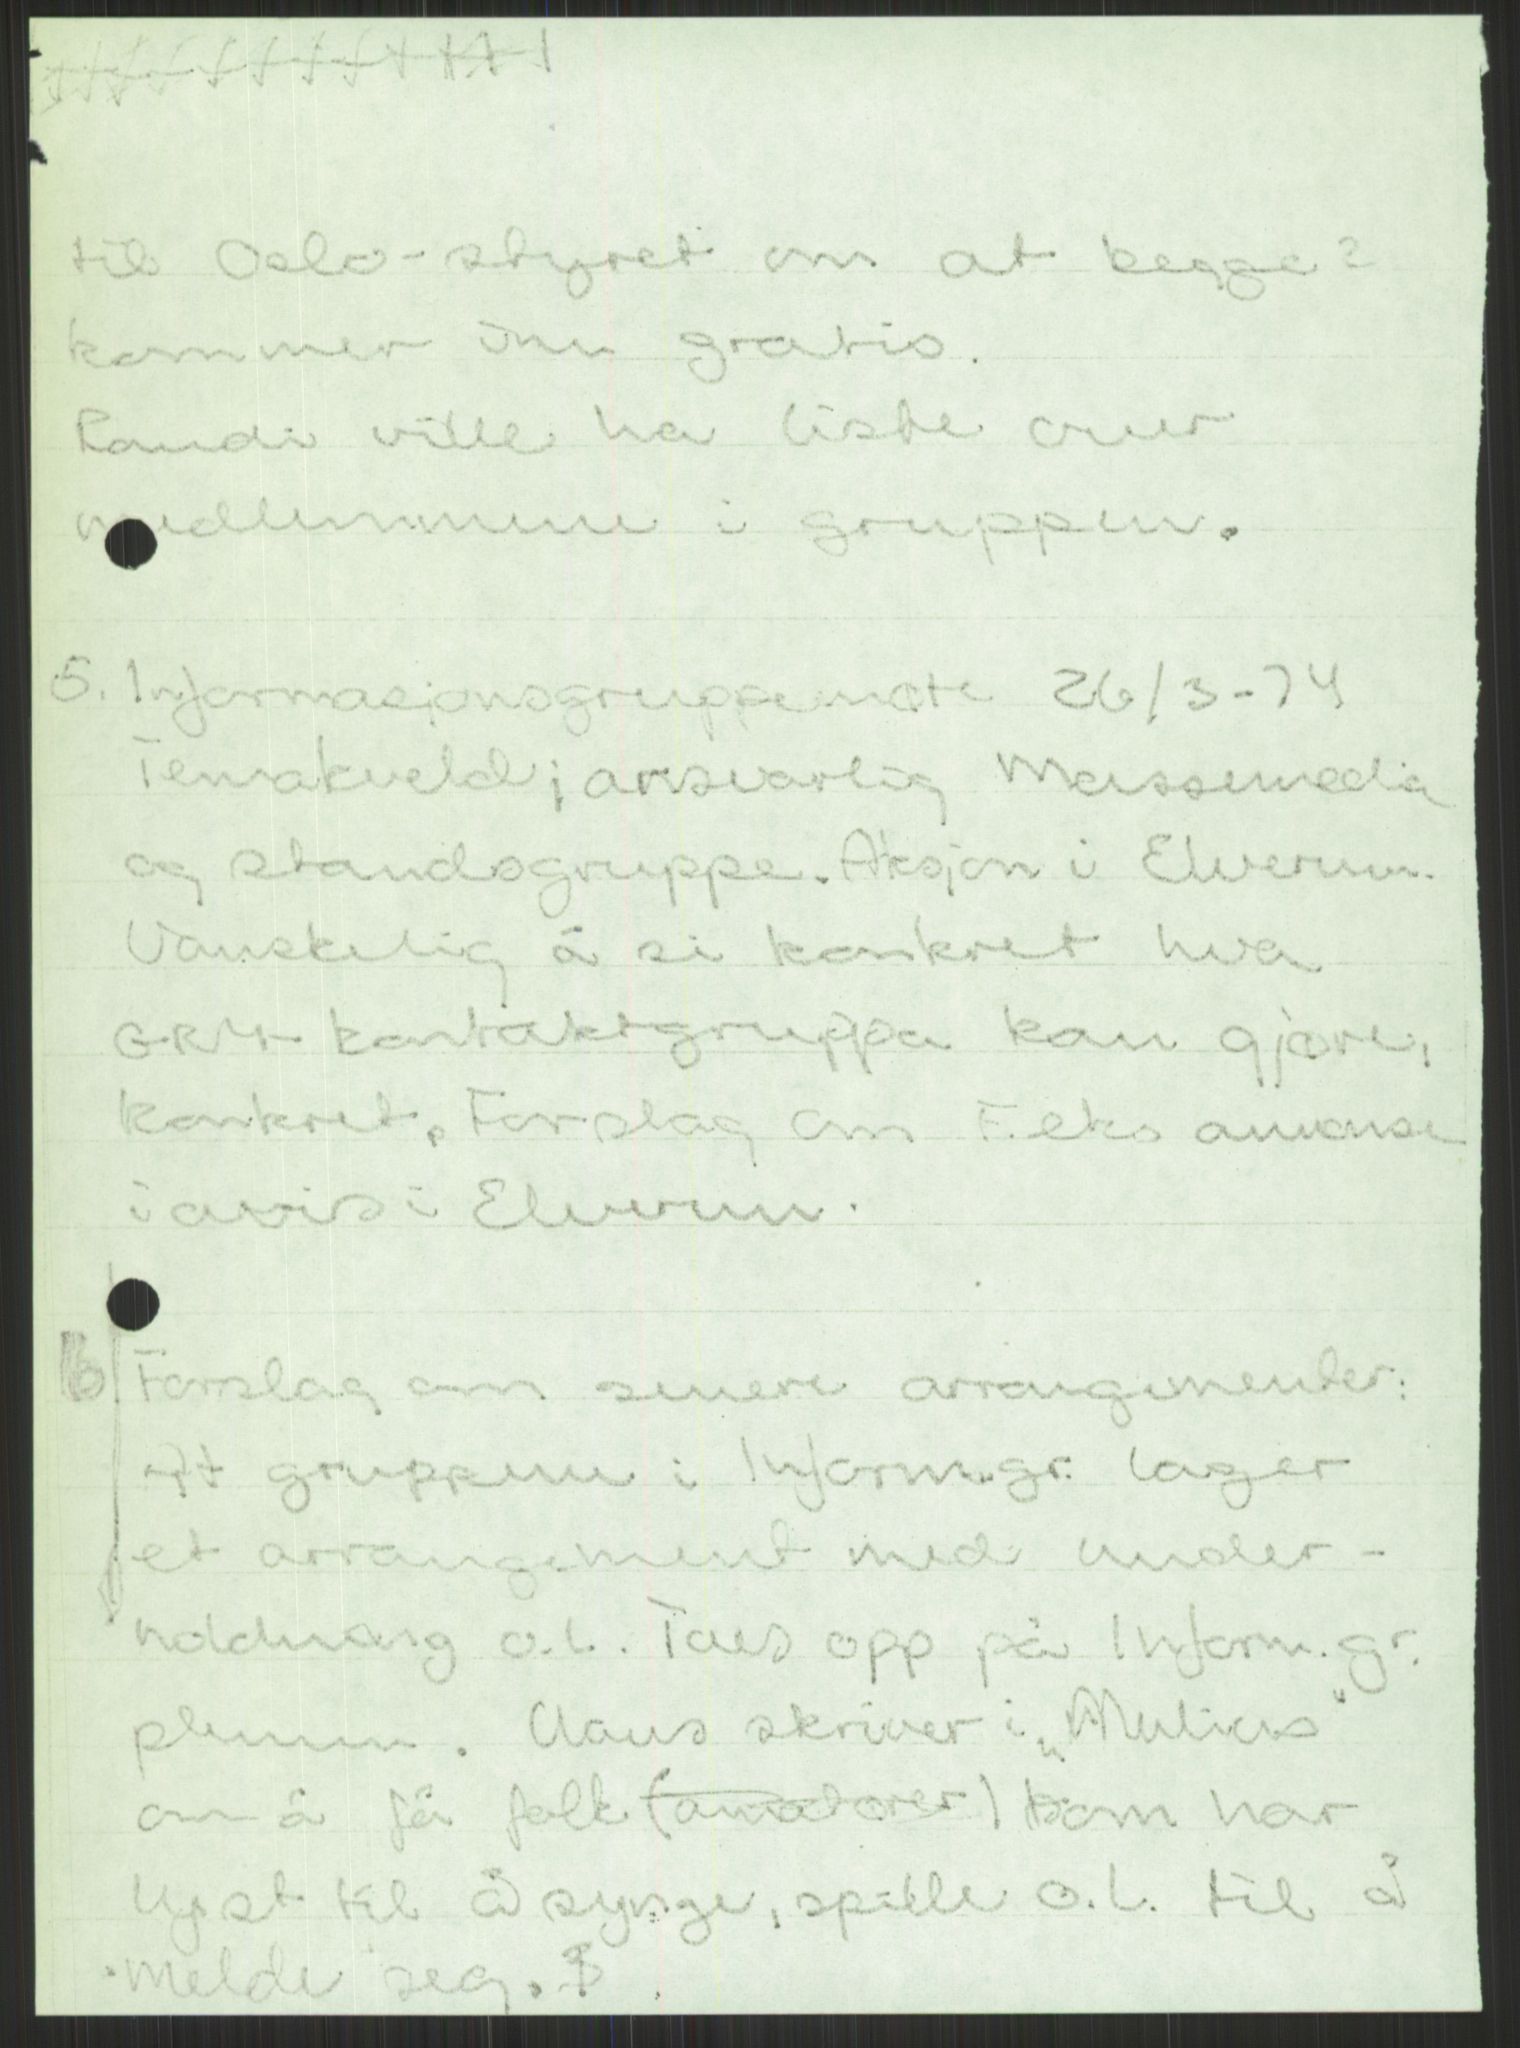 til Oslo-styret om at begge 2
kommer inn gratis.
Randi ville ha liste over
medlemmene i gruppen.
5. Informasjonsgruppemøte 26/3-74
Temakveld; ansvarlig Massemedia
og standsgruppe. Aksjon i Elverum.
Vanskelig å si konkret hva
kontaktgruppa kan gjøre,
konkret. Forslag om F.eks annonse
i avis i Elverum.
6 Forslag om senere arrangementer:
At gruppene i Inform.gr. lager
et arrangement med under-
holdning o.l. Taes opp på Inform.gr.
plenum. Claus skriver i
om å få folk (amatører) som har
lyst til å synge, spille o.l. til å
melde seg.